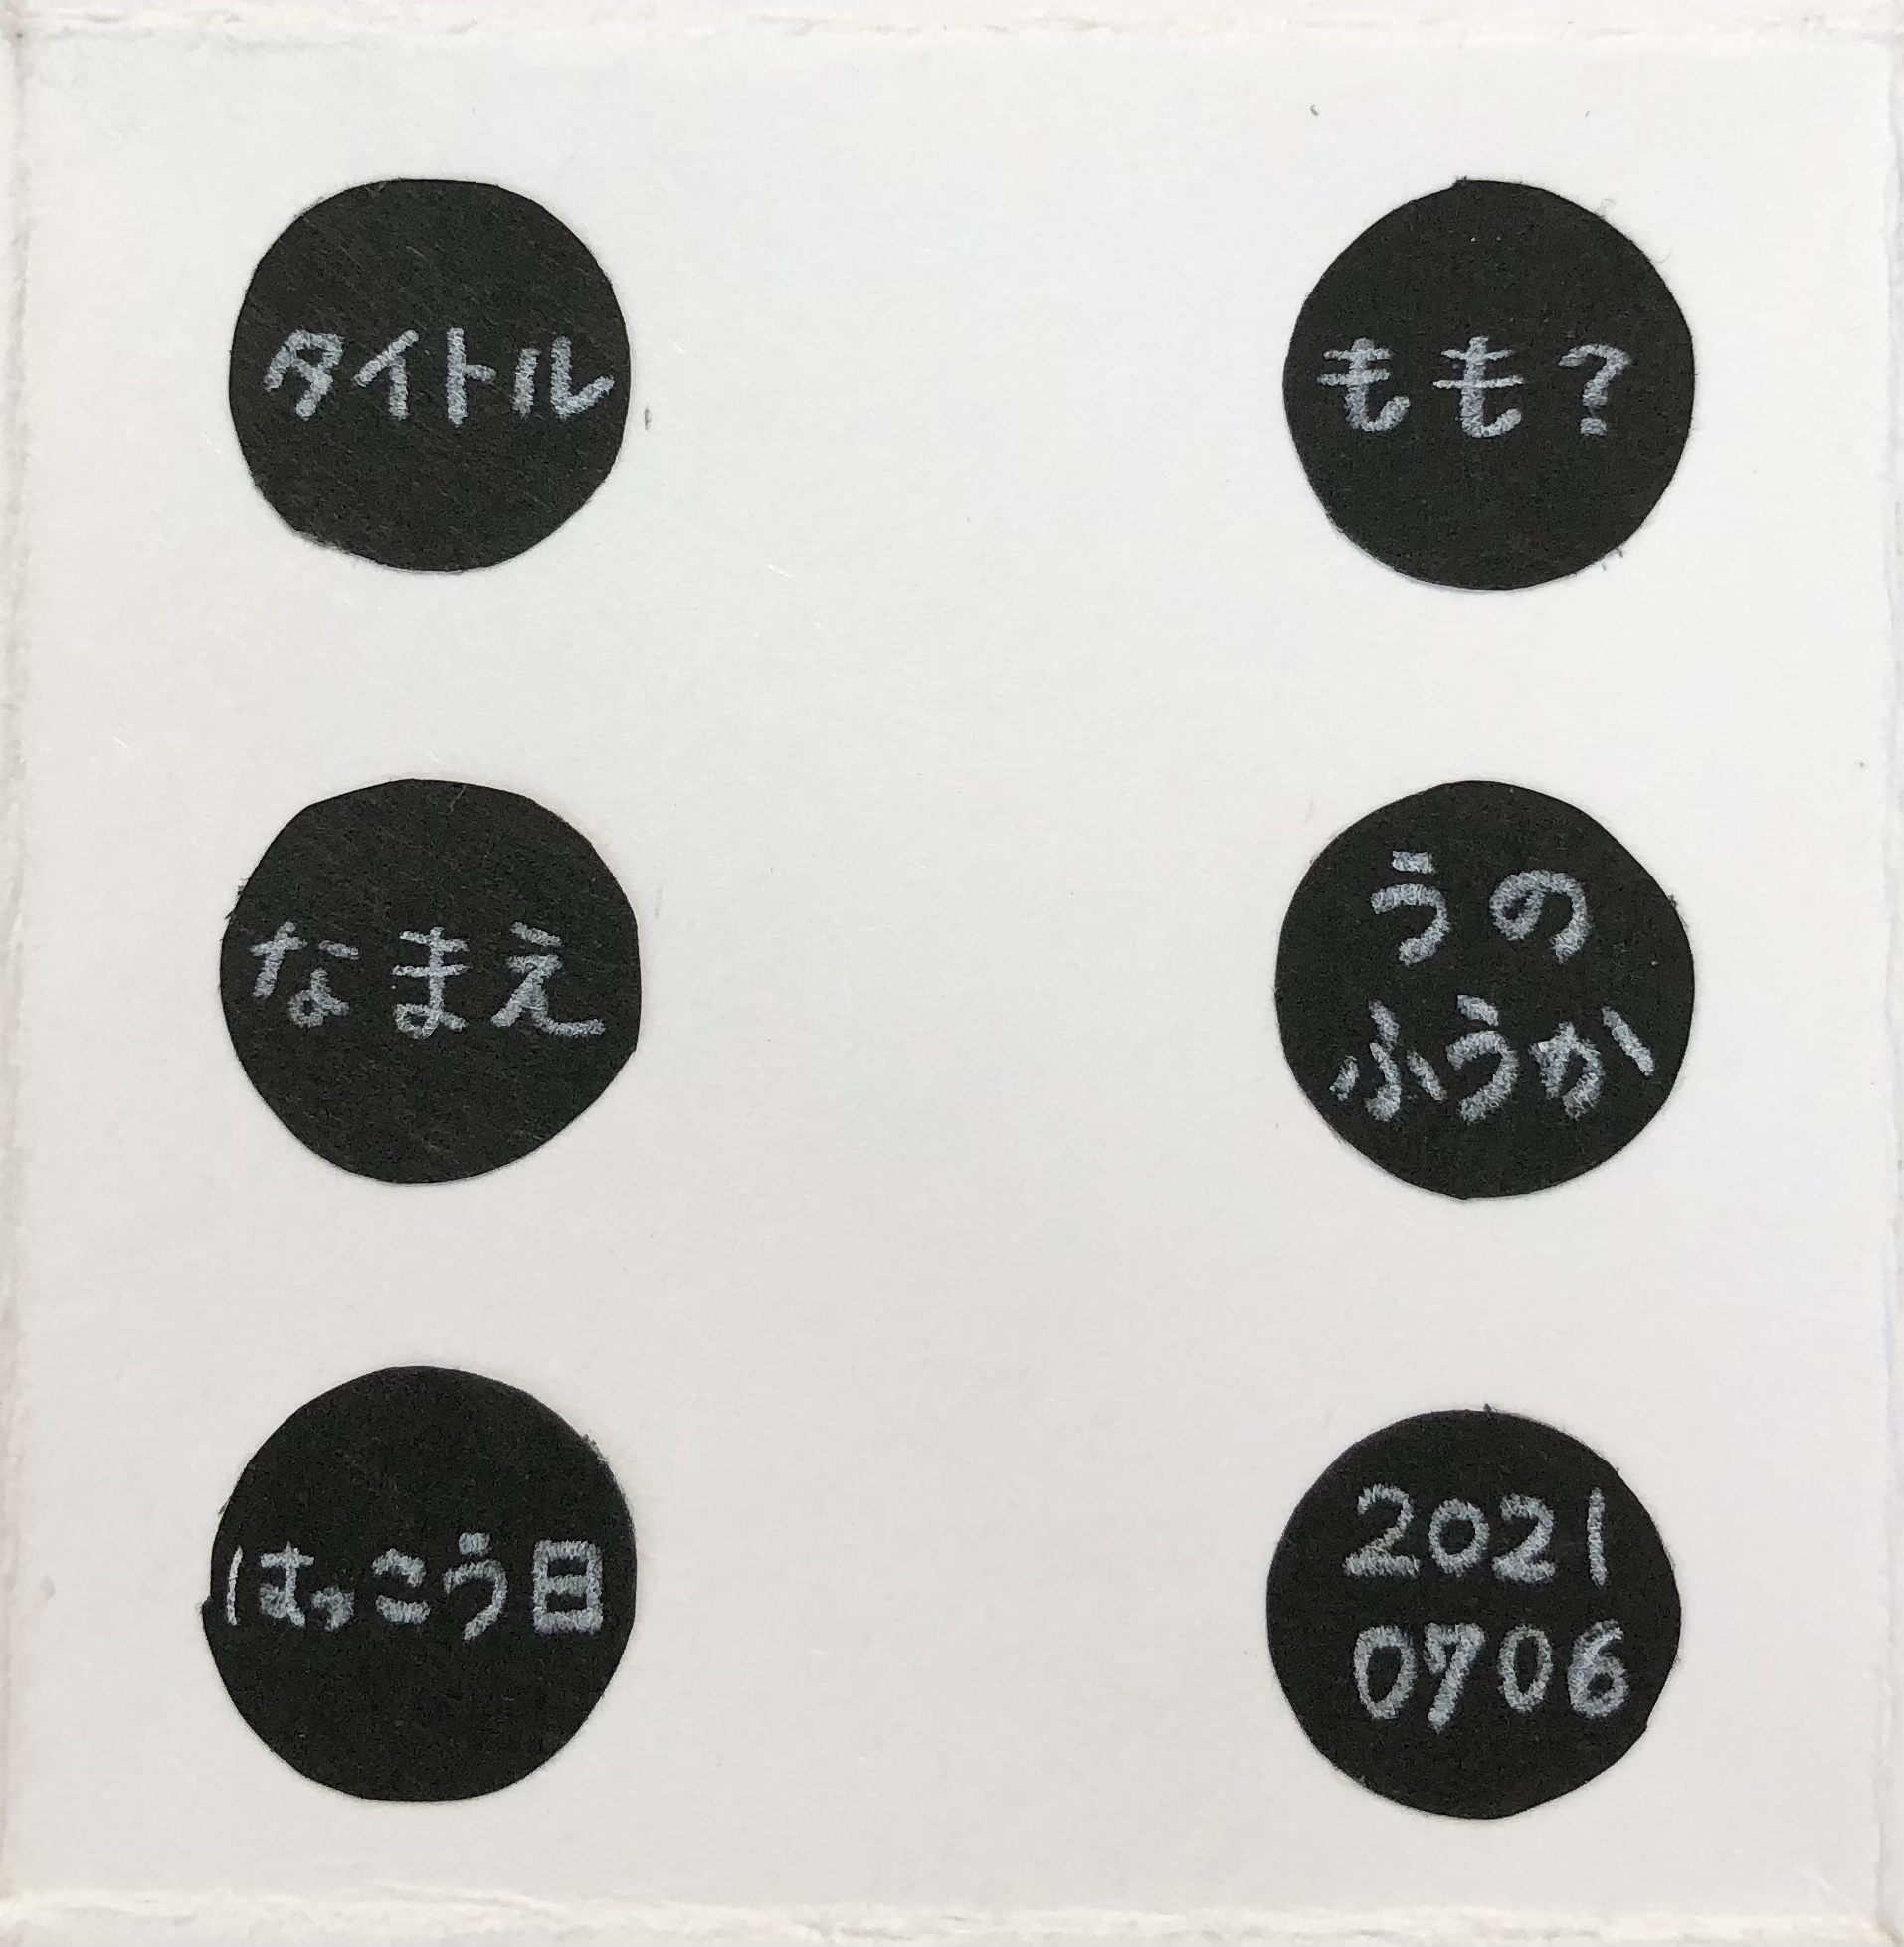 タイトル
もも?
なまえ
うの
ふうか
はっこう日
2021
0706